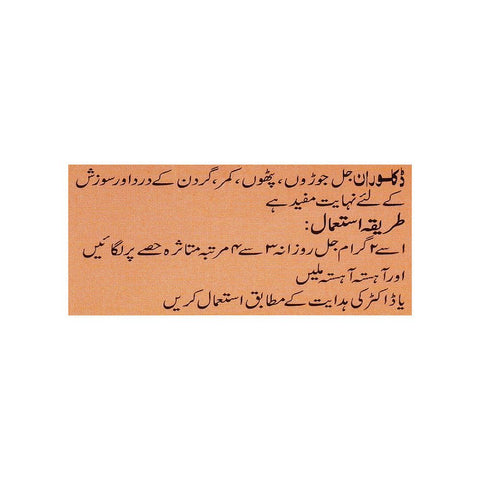 ڈکلوران جل جوڑوں، پٹھوں، کمر، گردن کے درد اور سوزش
کے لئے نہایت مفید ہے
طریقہ استعمال:
۲ اسے ۴ گرام جل روزانہ ۳ سے ۴ مرتبہ متاثرہ حصے پر لگائیں
اور آہستہ آہستہ ملیں
یا ڈاکٹر کی ہدایت کے مطابق استعمال کریں